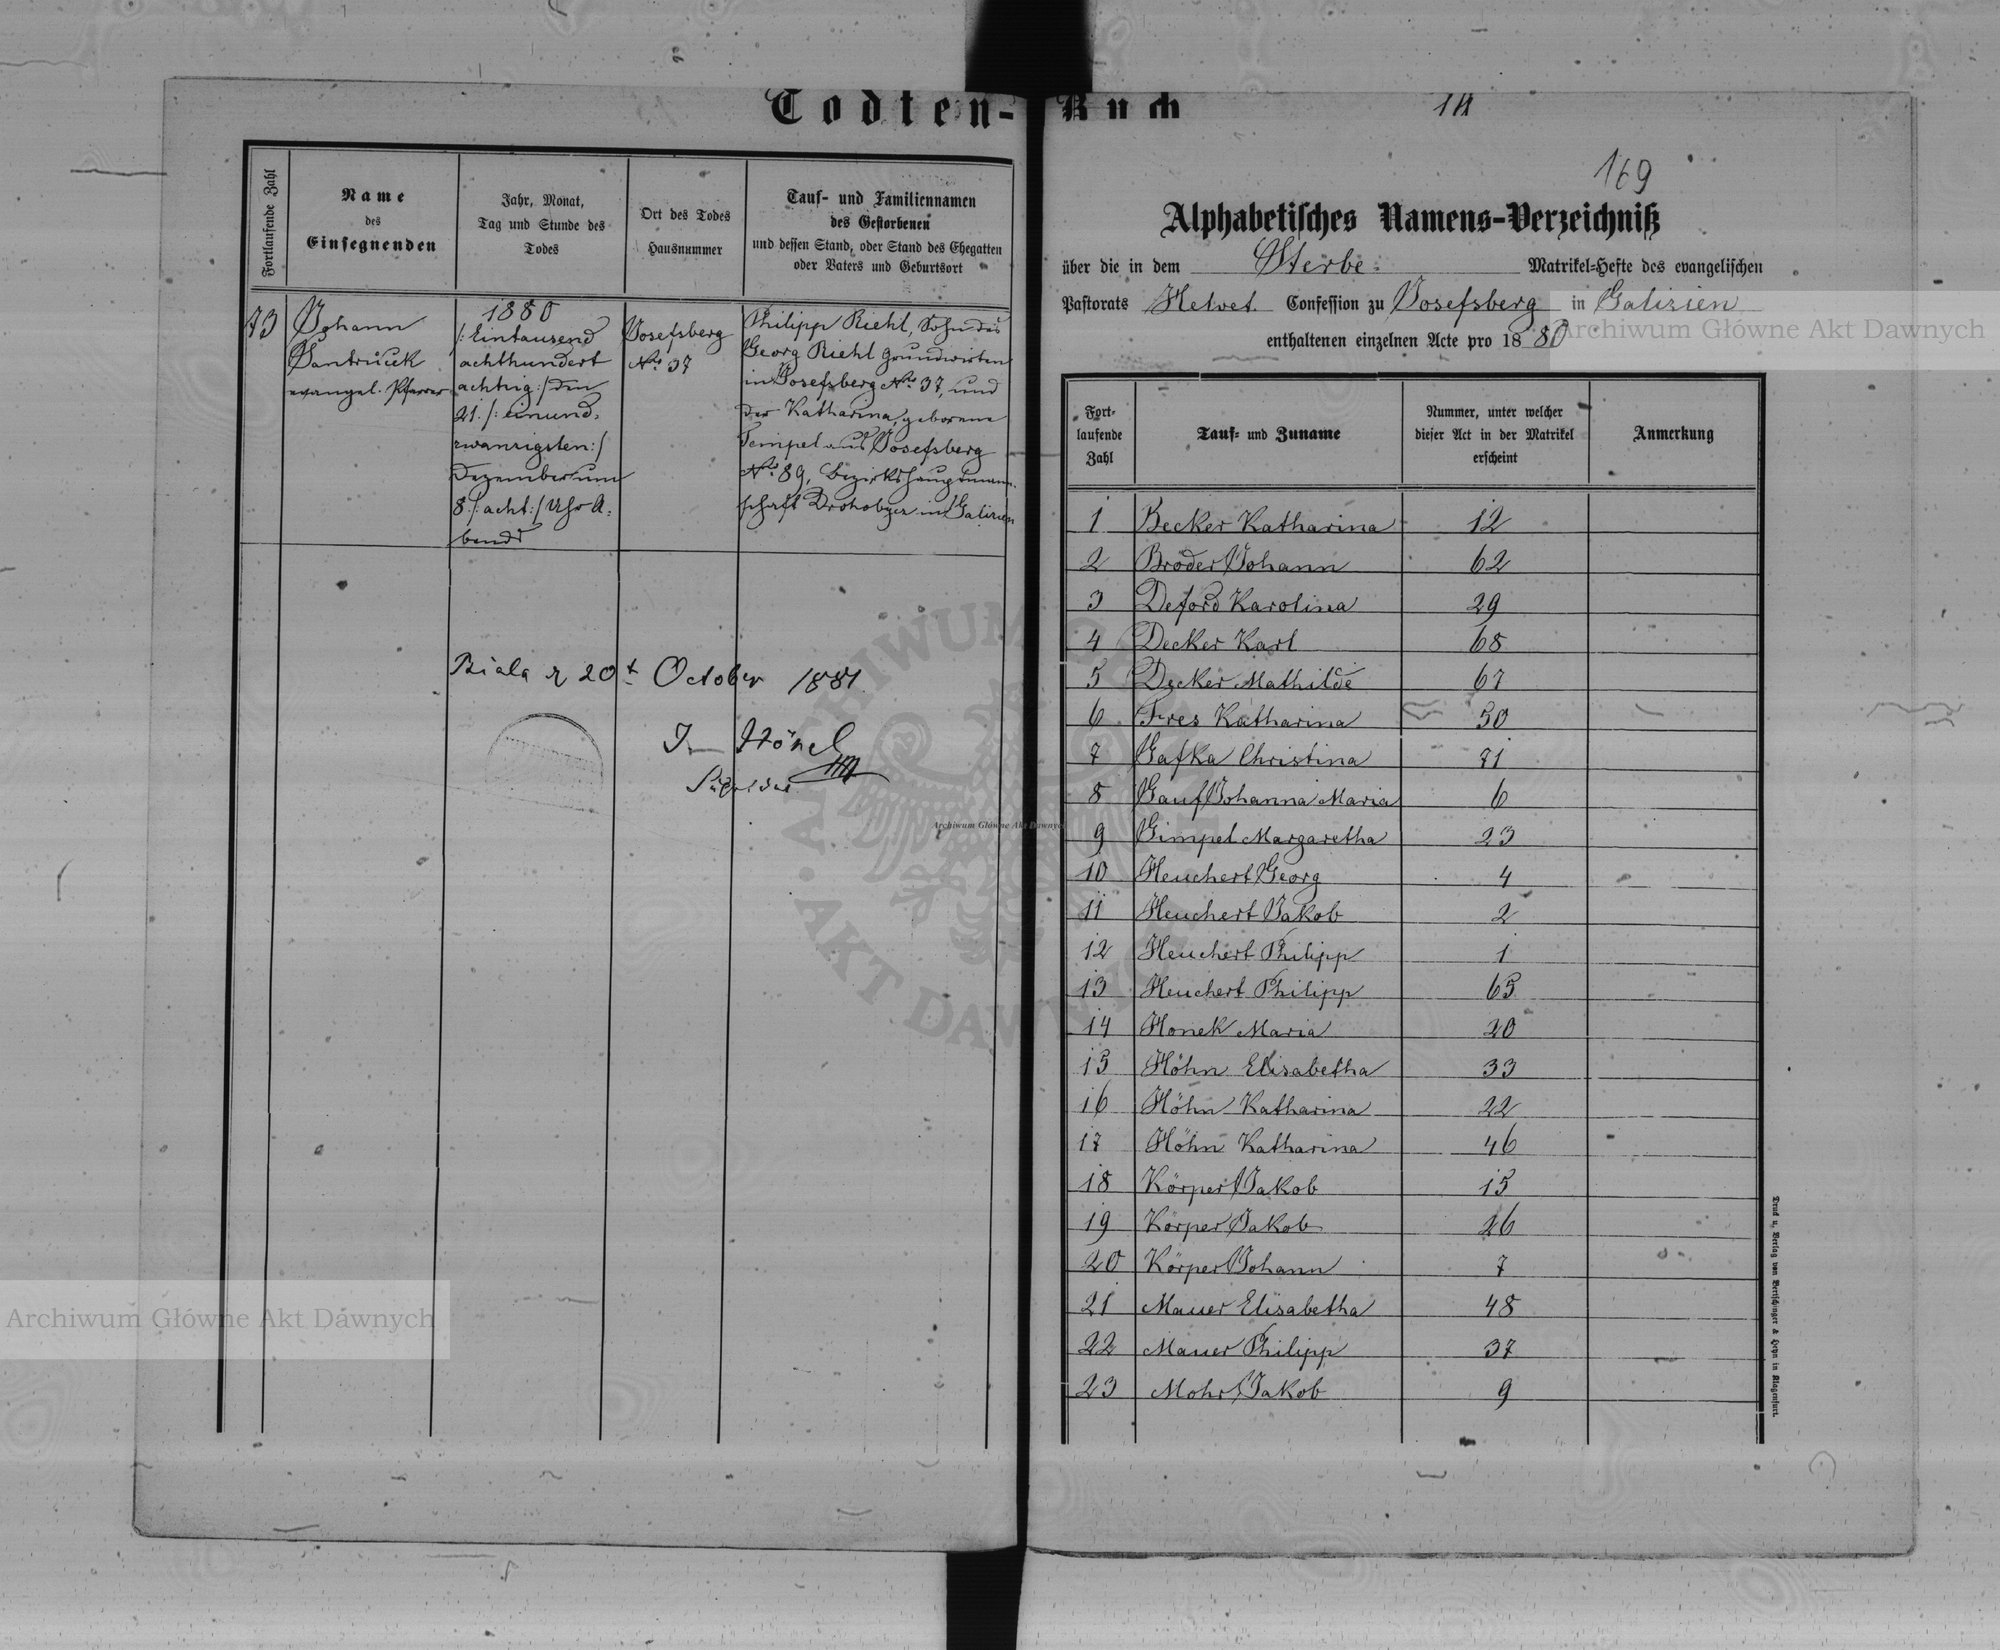 Todten-Buch
169
Fortlaufende Zahl
Name
des
Einsegnenden
Jahr, Monat,
Tag und Stunde des
Todes
Ort des Todes
Hausnummer
Tauf- und Familiennamen
des Gestorbenen
und dessen Stand, oder Stand des Ehegatten
oder Vaters und Geburtsort
73
Johann
evangel. Pfarrer
1880
/:Eintausend
achthundert
achtzig:/ den
21. /:einund-
zwanzigsten:/
Dezember um
8 /:acht:/ Uhr A-
bends
Josefsberg
No 37
Philipp Riehl, Sohn des
Georg Riehl Grundwirten
in Josefsberg No 37, und
der Katharina, geborene
aus Josefsberg
No 89, Bezirkshauptmann-
schaft Drohobycz in Galizien
Biala 20t October 1881.
Alphabetisches Namens-Verzeichniß
über die in dem Sterbe- Matrikel-Hefte des evangelischen
Pastorats Helvet. Confession zu Josefsberg in Galizien
enthaltenen einzelnen Acte pro 1880
Fort-
laufende
Zahl
Tauf- und Zuname
Nummer, unter welcher
dieser Act in der Matrikel
erscheint
Anmerkung
1 Becker Katharina 12
2 Bröder Johann 62
3 Karolina 29
4 Decker Karl 68
5 Decker Mathilde 67
6 Katharina 50
7 Gafka Christina
8 Gauf Johanna Maria 6
9 Gimpel Margaretha 23
10 Heuchert Georg 4
11 Heuchert Jakob 2
12 Heuchert Philipp 1
13 Heuchert Philipp 65
14 Honek Maria 20
15 Höhn Elisabetha 33
16 Höhn Katharina 22
17 Höhn Katharina 46
18 Körper Jakob 15
19 Körper Jakob 26
20 Körper Johann 7
21 Mauer Elisabetha 48
22 Mauer Philipp 37
23 Mohr Jakob 9
Druck u. Verlag von Bertschinger & Heyn in Klagenfurt.
Archiwum Główne Akt Dawnych
Archiwum Główne Akt Dawnych
Archiwum Główne Akt Dawnych